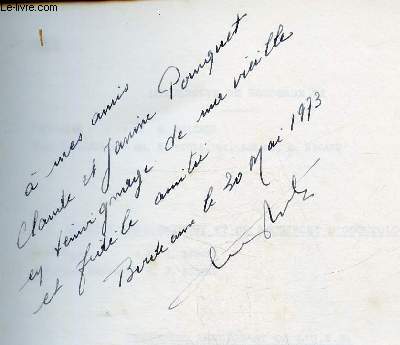 Le-Livre.com
à mes amis
Claude et Janine Pouyet
en témoignage de une vieille
et fidèle amitié
Bordeaux le 30 Mai 1973